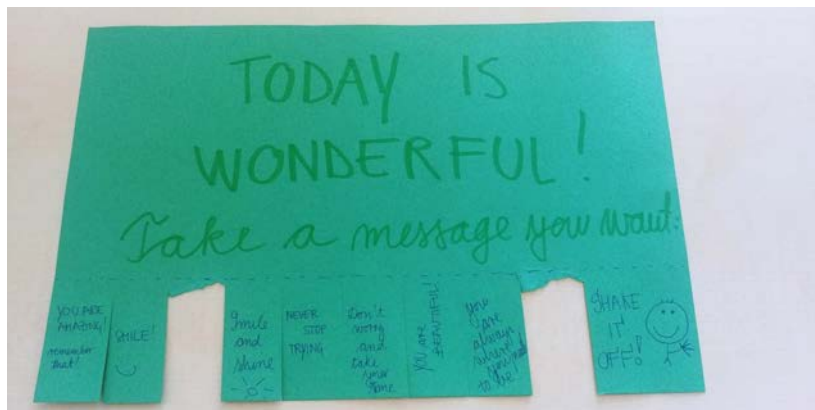 TODAY IS
WONDERFUL!
Take a message you want:
YOU ARE
AMAZING!
remember
that!
SMILE!
Smile
and
shine
NEVER
STOP
TRYING
Don't
worry
and
take
your
time
YOU ARE
BEAUTIFUL!
you
are
always
where
you need
to be
SHAKE
IT
OFF!